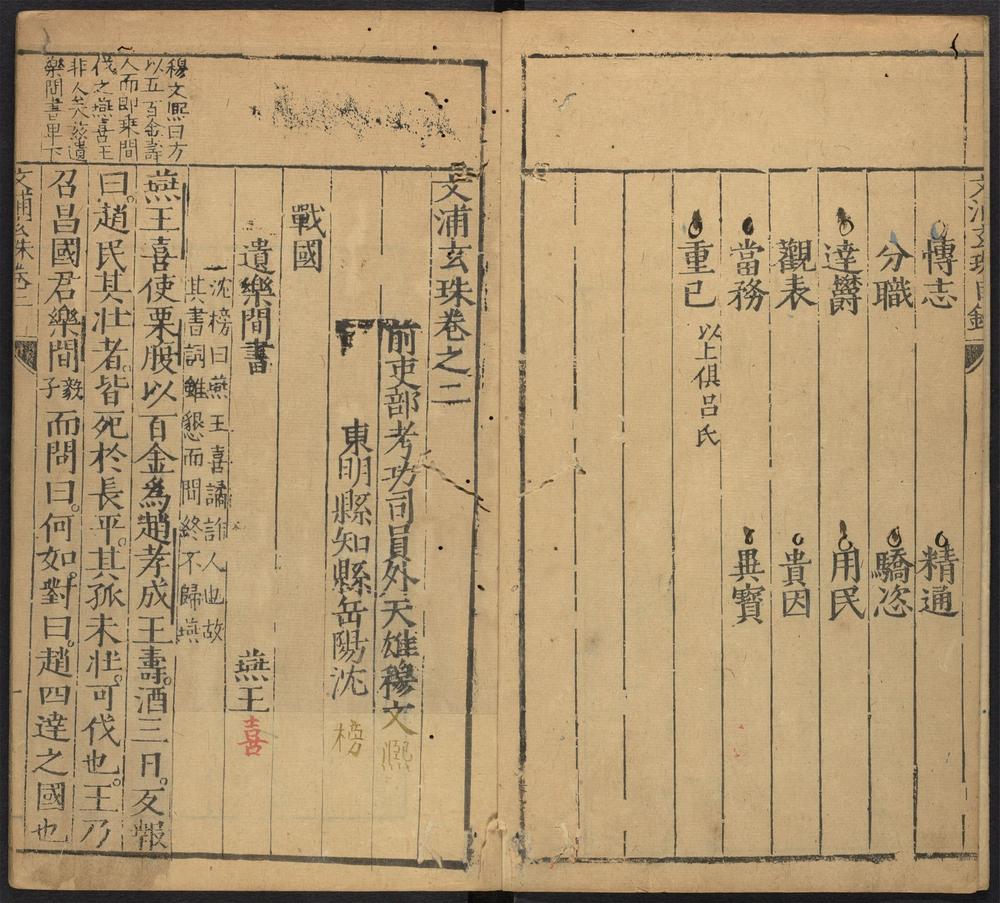 文浦玄珠目錄
愽志 精通
分職 驕恣
達欝 用民
觀表 貴因
當務 異寳
重己 以上俱呂氏
文浦玄珠卷之二
前吏部考功司員外天雄穆文熈
東明縣知縣岳陽沈榜
戰國
遺樂間書 燕王喜
沈榜曰燕王喜譎詐人也故
其書詞雖懇而間終不歸燕
穆文熈曰方
以五百金壽
人而即乘間
伐之燕喜王
非人矣茲遺
樂間書卑下
燕王喜使栗股以百金為趙孝成王壽。酒三日。反報
曰。趙民其壯者。皆死於長平。其孤未壯。可伐也。王乃
召昌國君樂間毅子而問曰。何如。對曰。趙四達之國也
文浦玄珠卷二
一